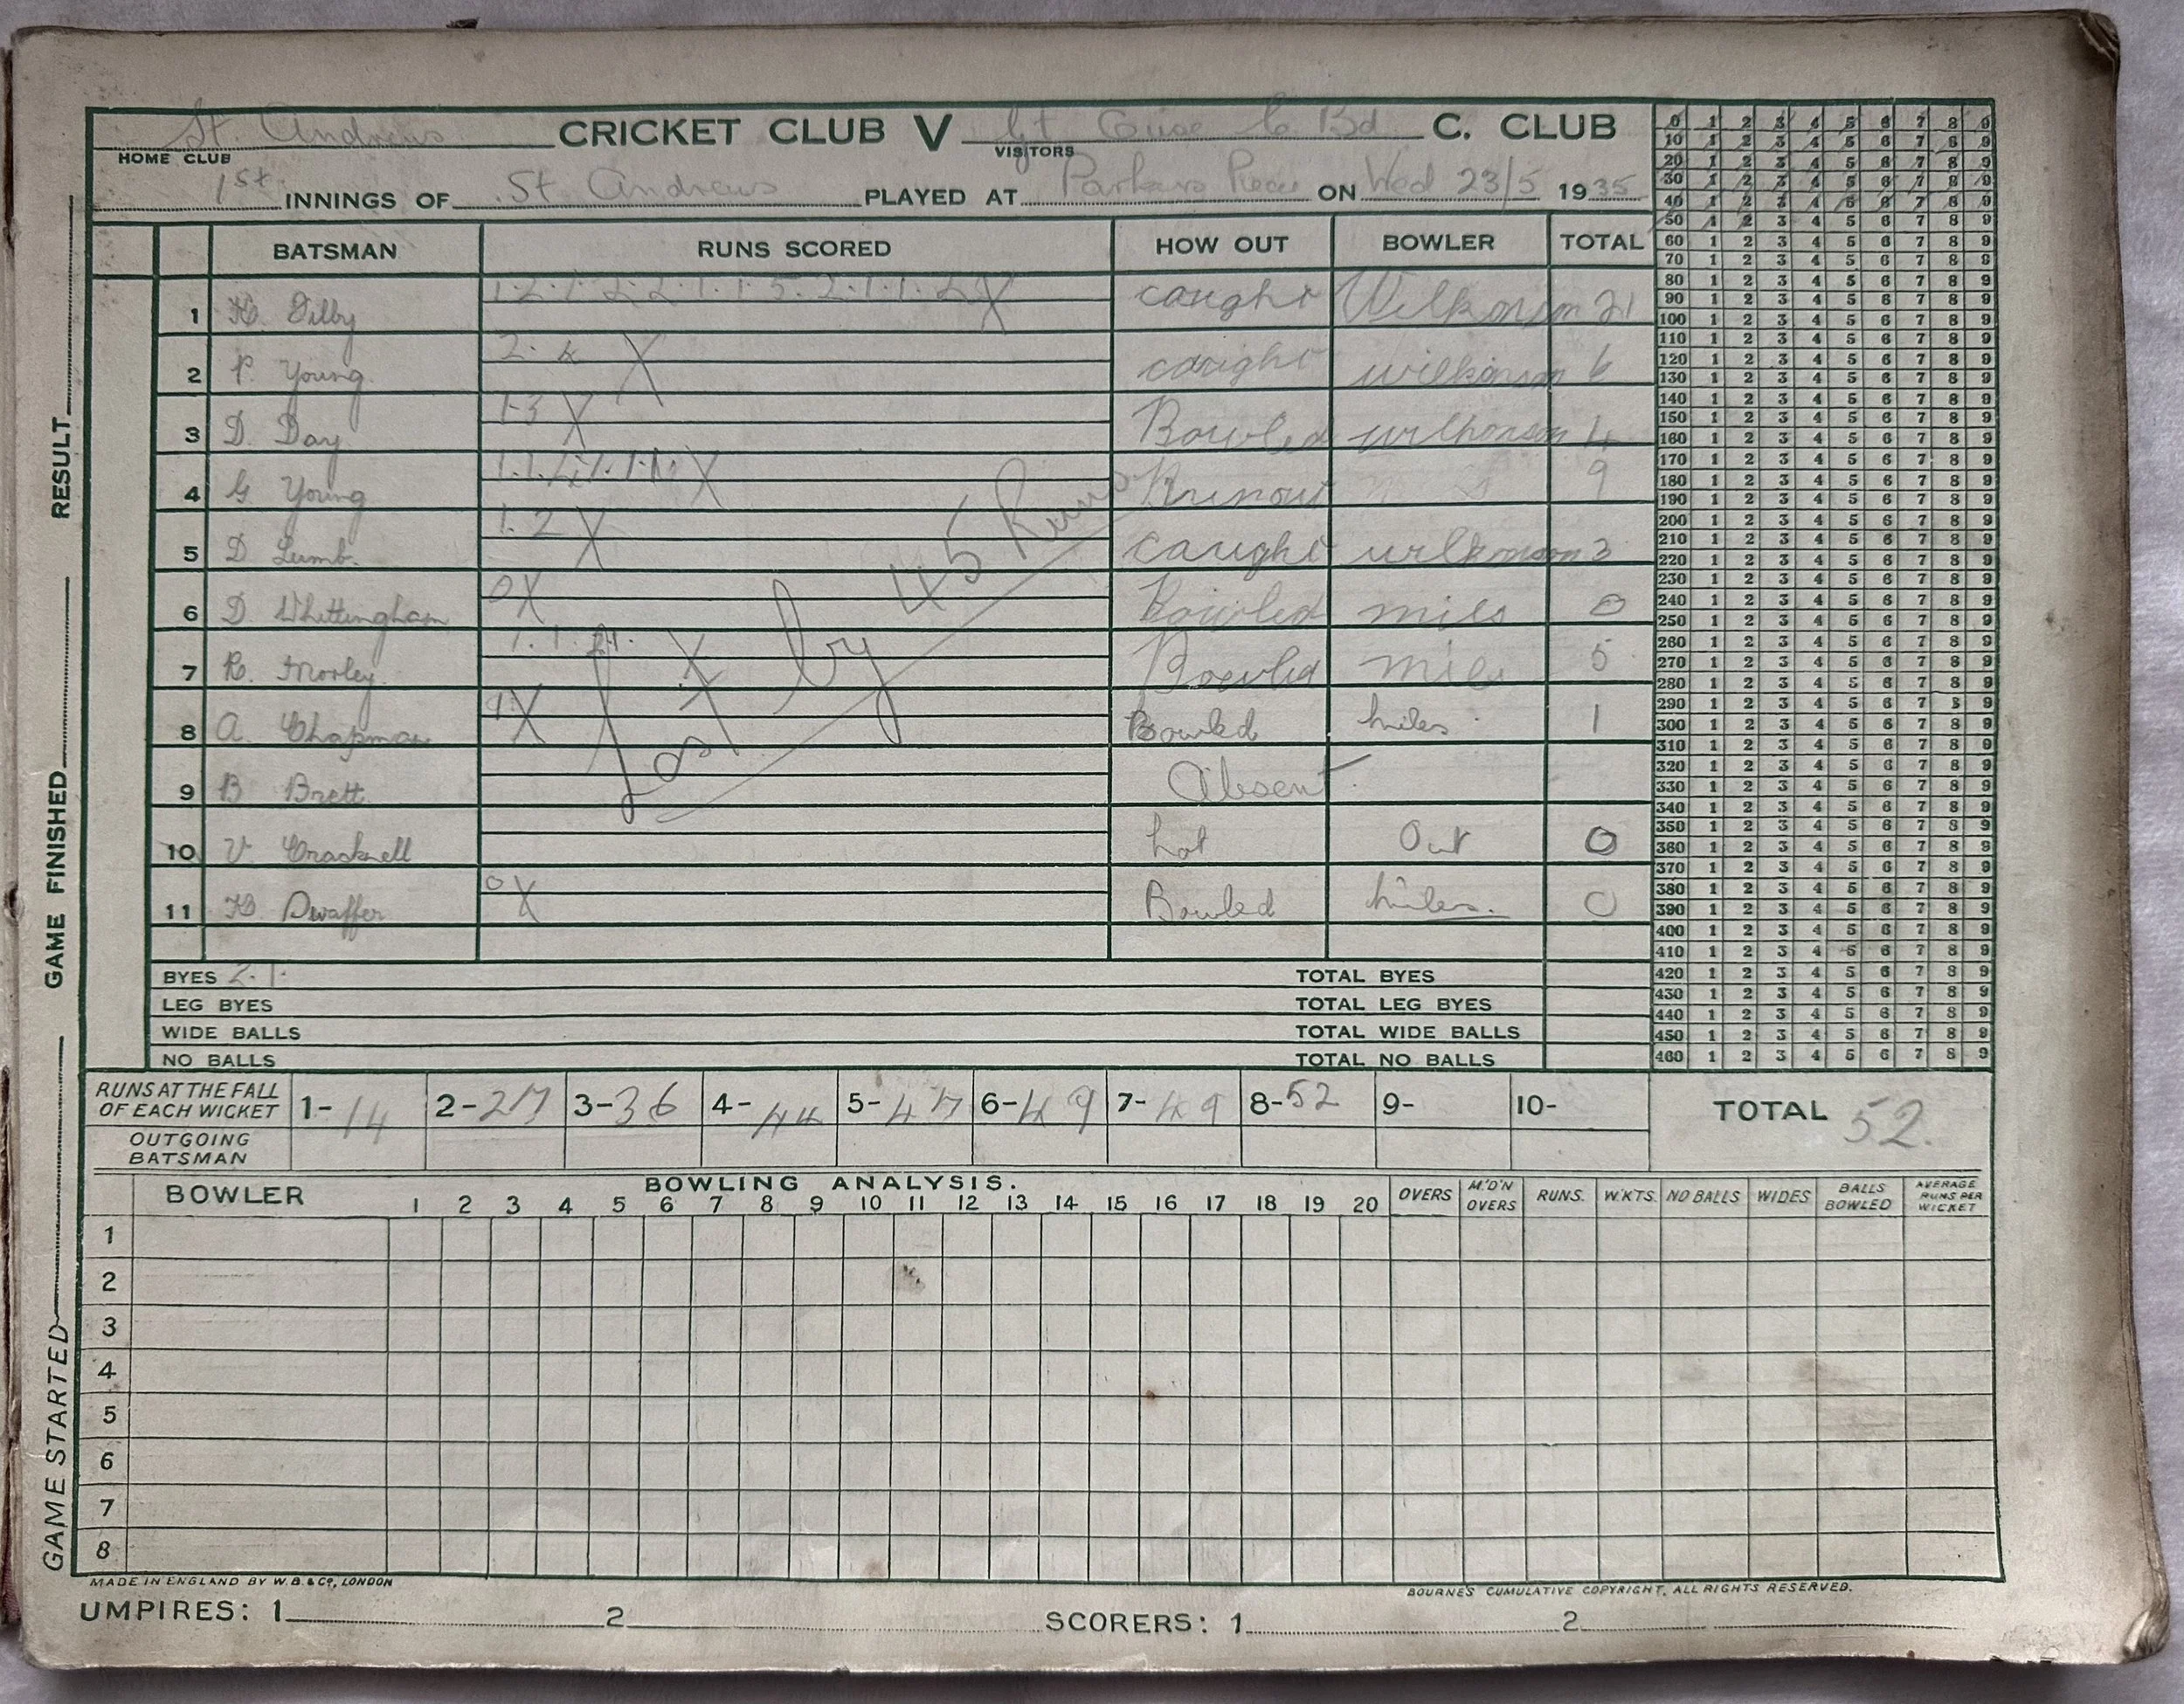 St. Andrews CRICKET CLUB V Bd C. CLUB
HOME CLUB VISITORS
1st INNINGS OF St Andrews PLAYED AT Parkers Piece ON Wed 23/5 1935
BATSMAN RUNS SCORED HOW OUT BOWLER TOTAL
1 caught Wilkinson 21
2 P. Young 2. 4 X caught wilkinson 6
3 D. Day 1-3 X Bowled wilkinson 4
4 G Young Runout 9
5 D Lumb. 1. 2 X caught wilkinson 3
6 D Whittingham 0X Bowled miles 0
7 R. Morley Bowled miles 5
8 A. Chapman 1X Bowled miles 1
9 B Brett Absent
10 V Cracknell not Out 0
11 Dwaffer 0X Bowled miles. 0
Lost by 45 Runs
BYES 2. 1. TOTAL BYES
LEG BYES TOTAL LEG BYES
WIDE BALLS TOTAL WIDE BALLS
NO BALLS TOTAL NO BALLS
RUNS AT THE FALL OF EACH WICKET 1- 14 2- 27 3- 36 4- 44 5- 47 6- 49 7- 49 8- 52 9- 10- TOTAL 52.
OUTGOING BATSMAN
BOWLING ANALYSIS.
BOWLER 1 2 3 4 5 6 7 8 9 10 11 12 13 14 15 16 17 18 19 20 OVERS M'D'N OVERS RUNS. W'KTS. NO BALLS WIDES BALLS BOWLED AVERAGE RUNS PER WICKET
1
2
3
4
5
6
7
8
MADE IN ENGLAND BY W. B. & Co, LONDON BOURNE'S CUMULATIVE COPYRIGHT, ALL RIGHTS RESERVED.
UMPIRES: 1 2 SCORERS: 1 2
GAME STARTED GAME FINISHED RESULT
0 1 2 3 4 5 6 7 8 9
10 1 2 3 4 5 6 7 8 9
20 1 2 3 4 5 6 7 8 9
30 1 2 3 4 5 6 7 8 9
40 1 2 3 4 5 6 7 8 9
50 1 2 3 4 5 6 7 8 9
60 1 2 3 4 5 6 7 8 9
70 1 2 3 4 5 6 7 8 9
80 1 2 3 4 5 6 7 8 9
90 1 2 3 4 5 6 7 8 9
100 1 2 3 4 5 6 7 8 9
110 1 2 3 4 5 6 7 8 9
120 1 2 3 4 5 6 7 8 9
130 1 2 3 4 5 6 7 8 9
140 1 2 3 4 5 6 7 8 9
150 1 2 3 4 5 6 7 8 9
160 1 2 3 4 5 6 7 8 9
170 1 2 3 4 5 6 7 8 9
180 1 2 3 4 5 6 7 8 9
190 1 2 3 4 5 6 7 8 9
200 1 2 3 4 5 6 7 8 9
210 1 2 3 4 5 6 7 8 9
220 1 2 3 4 5 6 7 8 9
230 1 2 3 4 5 6 7 8 9
240 1 2 3 4 5 6 7 8 9
250 1 2 3 4 5 6 7 8 9
260 1 2 3 4 5 6 7 8 9
270 1 2 3 4 5 6 7 8 9
280 1 2 3 4 5 6 7 8 9
290 1 2 3 4 5 6 7 8 9
300 1 2 3 4 5 6 7 8 9
310 1 2 3 4 5 6 7 8 9
320 1 2 3 4 5 6 7 8 9
330 1 2 3 4 5 6 7 8 9
340 1 2 3 4 5 6 7 8 9
350 1 2 3 4 5 6 7 8 9
360 1 2 3 4 5 6 7 8 9
370 1 2 3 4 5 6 7 8 9
380 1 2 3 4 5 6 7 8 9
390 1 2 3 4 5 6 7 8 9
400 1 2 3 4 5 6 7 8 9
410 1 2 3 4 5 6 7 8 9
420 1 2 3 4 5 6 7 8 9
430 1 2 3 4 5 6 7 8 9
440 1 2 3 4 5 6 7 8 9
450 1 2 3 4 5 6 7 8 9
460 1 2 3 4 5 6 7 8 9